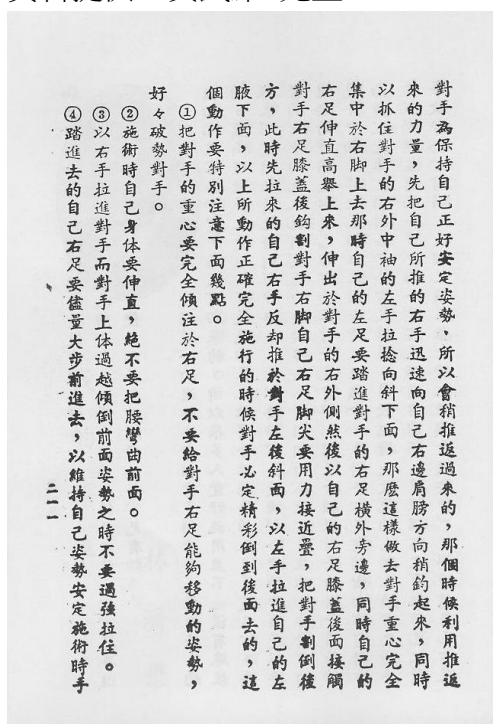 對手為保持自己正好安定姿勢，所以會稍推返過來的，那個時候利用推返
來的力量，先把自己所推的右手迅速向自己右邊肩膀方向稍鈎起來，同時
以抓住對手的右外中袖的左手拉捻向斜下面，那麼這樣做去對手重心完全
集中於右脚上去那時自己的左足要踏進對手的右足橫外旁邊，同時自己的
右足伸直高舉上來，伸出於對手的右外側然後以自己的右足膝蓋後面接觸
對手右足膝蓋後鈎割對手右脚自己右足脚尖要用力接近疊，把對手割倒後
方，此時先拉來的自己右手反却推於對手左後斜面，以左手拉進自己的左
腋下面，以上所動作正確完全施行的時候對手必定精彩倒到後面去的，這
個動作要特別注意下面幾點。
①把對手的重心要完全傾注於右足，不要給對手右足能夠移動的姿勢，
好々破勢對手。
②施術時自己身体要伸直，絕不要把腰彎曲前面。
③以右手拉進對手而對手上体過越傾倒前面姿勢之時不要過強拉住。
④踏進去的自己右足要儘量大步前進去，以維持自己姿勢安定施術時手
二一一